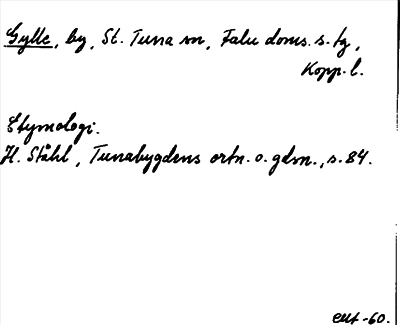 Gylle, by, St. Tuna sn, Falu doms. s. tg,
Kopp. l.
Etymologi.
H. Ståhl, Tunabygdens ortn. o. gdsn., s. 84.
-60.